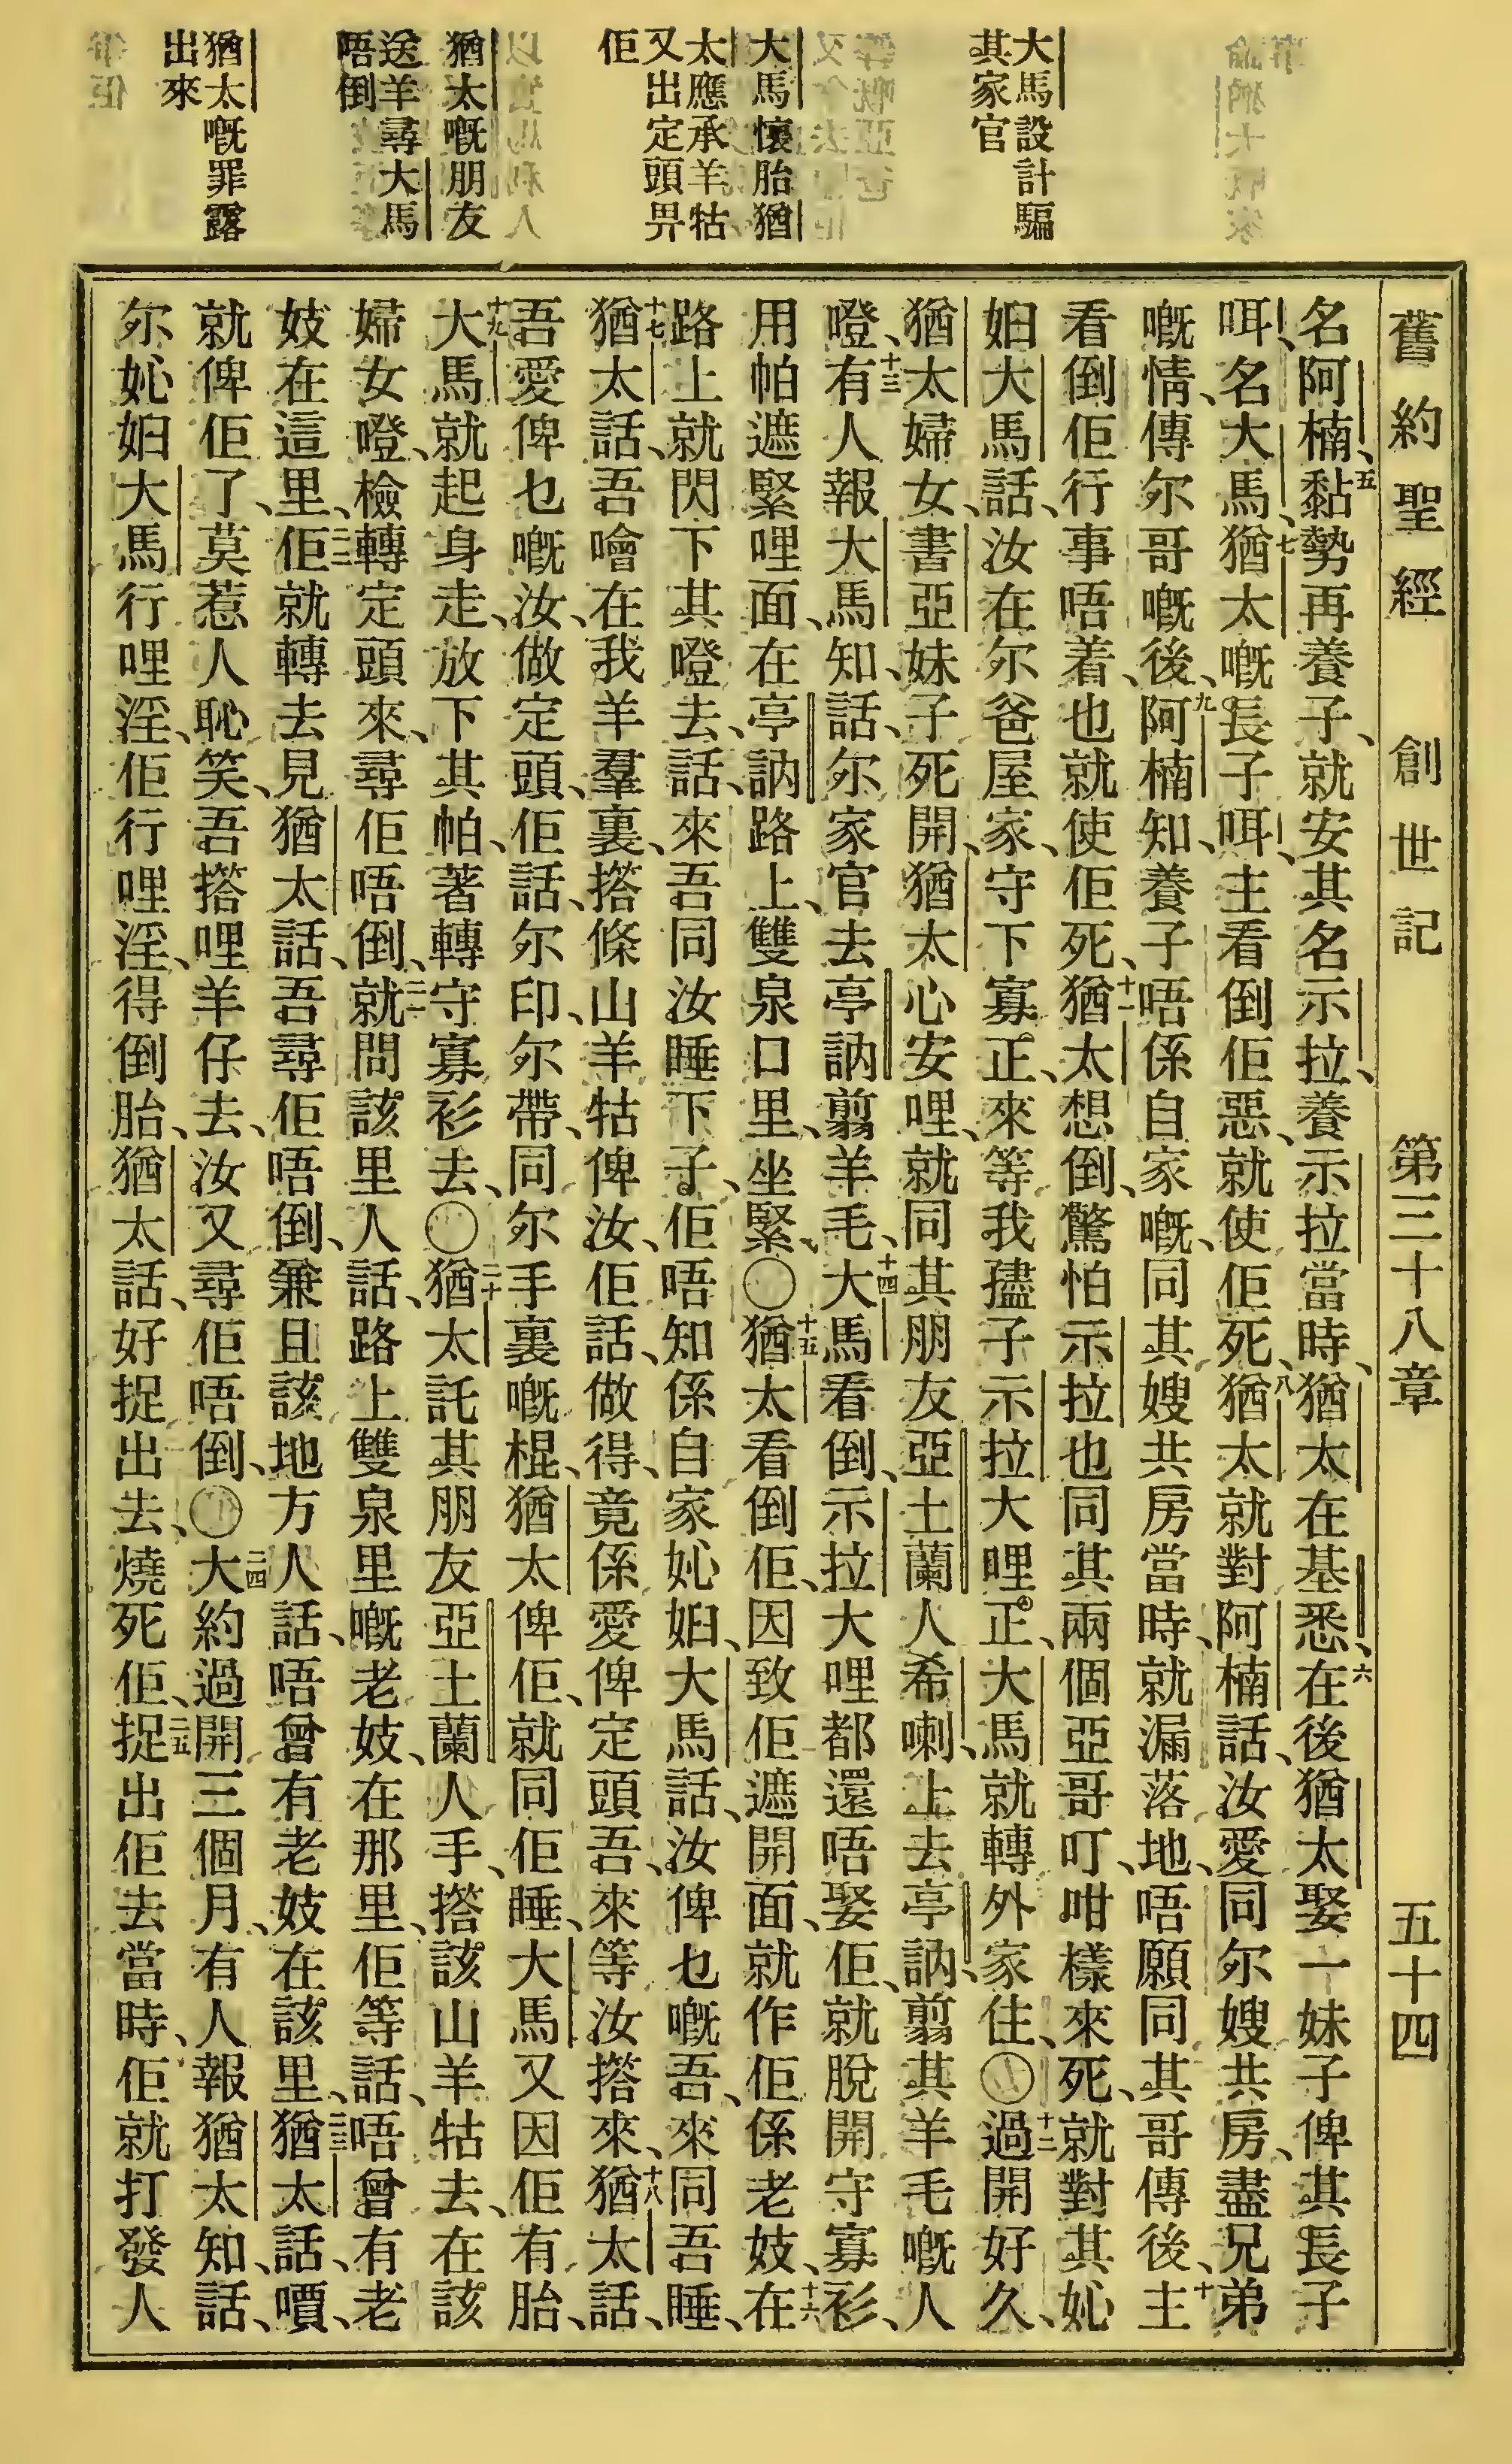 大馬設計騙
其家官
大馬懷胎猶
太應承羊牯
又出定頭畀
佢
猶太嘅朋友
送羊尋大馬
唔倒
猶太嘅罪露
出來
舊約聖經 創世記 第三十八章 五十四
名阿楠、五黏勢再養子、就安其名示拉、養示拉當時、猶太在基悉、六在後猶太娶一妹子俾其長子
咡、名大馬、七猶太嘅長子咡、主看倒佢惡、就使佢死、八猶太就對阿楠話、汝愛同尔嫂共房、盡兄弟
嘅情、傳尔哥嘅後、九阿楠知、養子唔係自家嘅、同其嫂共房當時、就漏落地、唔願同其哥傳後、十主
看倒佢行事唔着、也就使佢死、十一猶太想倒、驚怕示拉也同其兩個亞哥叮、咁樣來死、就對其妣
妇大馬話、汝在尔爸屋家、守下寡正、來等我𡥧子示拉大哩正、大馬就轉外家住、〇十二過開好久、
猶太婦女、書亞妹子死開、猶太心安哩、就同其朋友亞土蘭人希喇、上去亭訥、翦其羊毛嘅人
噔、十三有人報大馬知、話、尔家官去亭訥翦羊毛、十四大馬看倒、示拉大哩都還唔娶佢、就脫開守寡衫、
用帕遮緊哩面、在亭訥路上、雙泉口里、坐緊、〇十五猶太看倒佢、因致佢遮開面、就作佢係老妓、十六在
路上就閃下其噔去、話、來吾同汝睡下子、佢唔知係自家妣妇、大馬話、汝俾乜嘅吾、來同吾睡、
十七猶太話、吾噲在我羊羣裏、撘條山羊牯俾汝、佢話、做得、竟係愛俾定頭吾、來等汝撘來、十八猶太話、
吾愛俾乜嘅汝、做定頭、佢話、尔印、尔帶、同尔手裏嘅棍、猶太俾佢、就同佢睡、大馬又因佢有胎、
十九大馬就起身走、放下其帕、著轉守寡衫去、〇二十猶太託其朋友亞土蘭人手、撘該山羊牯去、在該
婦女噔、檢轉定頭來、尋佢唔倒、二一就問該里人話、路上雙泉里嘅老妓、在那里、佢等話、唔曾有老
妓在這里、二二佢就轉去見猶太話、吾尋佢唔倒、兼且該地方人話、唔曾有老妓在該里、二三猶太話、嘪、
就俾佢了、莫惹人恥笑、吾撘哩羊仔去、汝又尋佢唔倒、〇二四大約過開三個月、有人報猶太知、話、
尔妣妇大馬行哩淫、佢行哩淫、得倒胎、猶太話、好捉出去、燒死佢、二五捉出佢去當時、佢就打發人